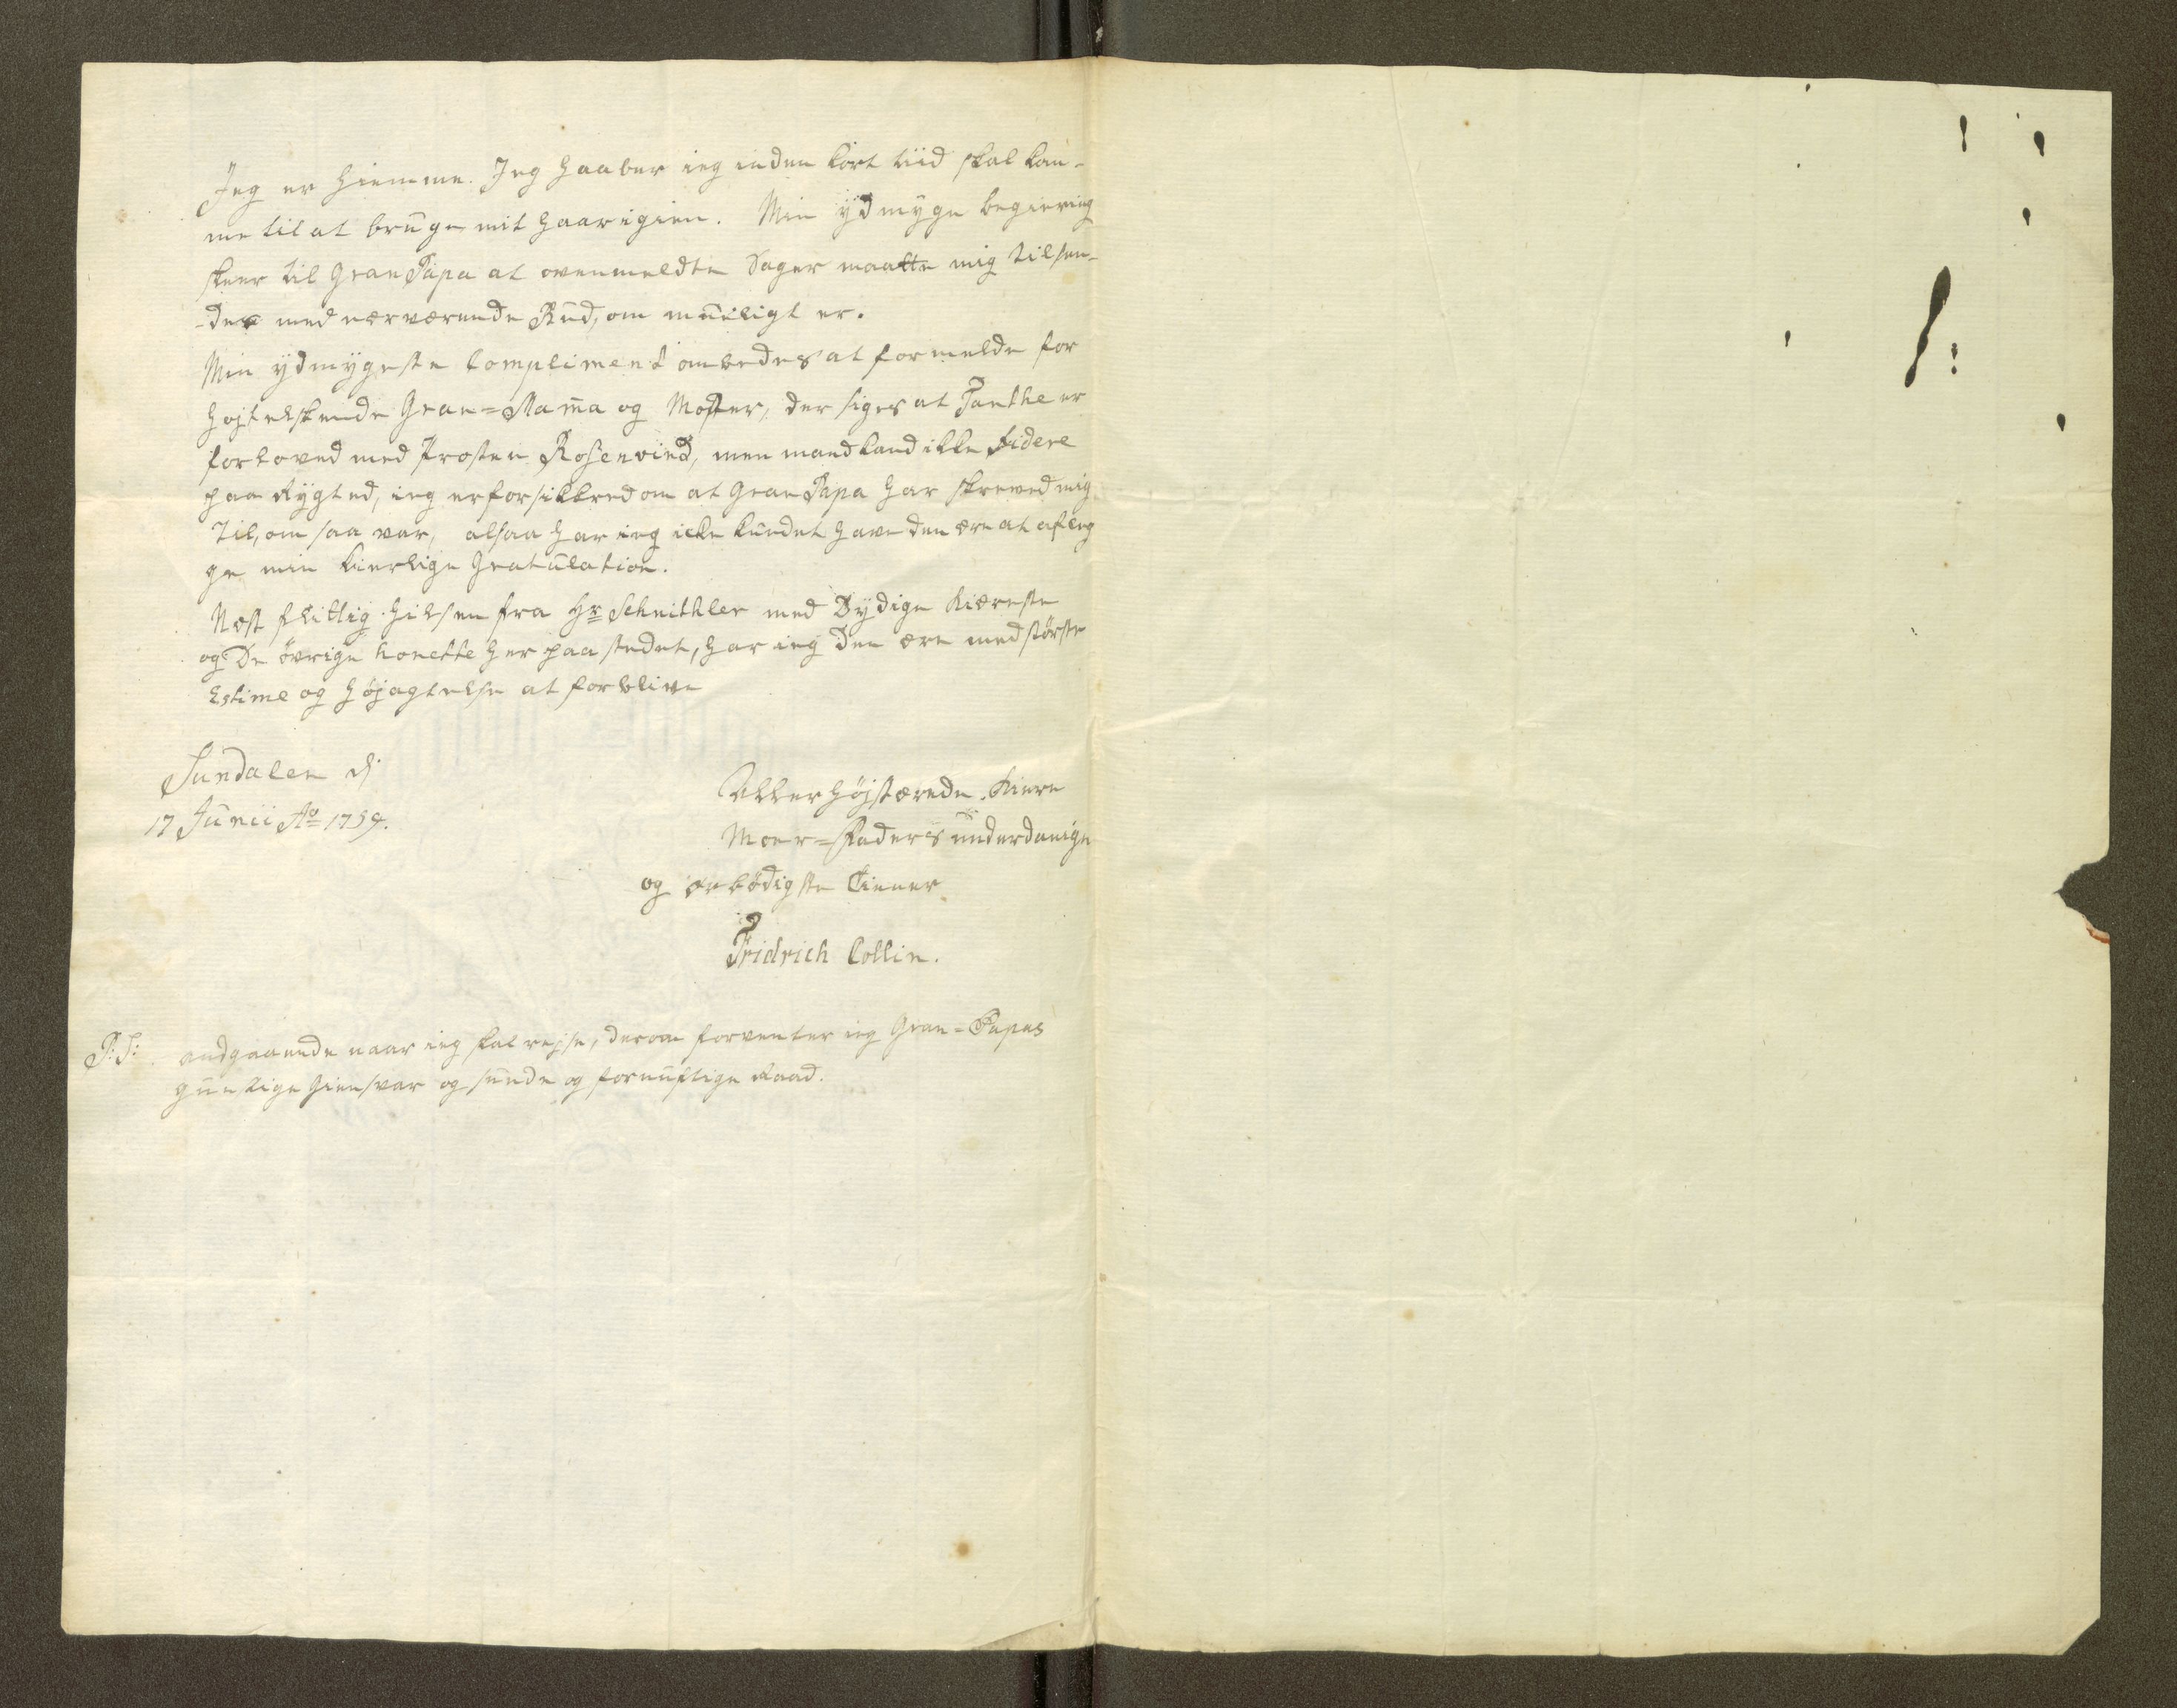 Jeg er hiemme. Jeg haaber ieg inden kort tiid skal kom-
me til at brüge mit haar igien. Min ÿdmÿge begiering
skeer til Gran Papa at ovenmeldte Sager maatte mig tilsen-
-des med nærværende Büd, om müeligt er.
Min ÿdmÿgeste Compliment ombedes at formelde for
højtelskende Gran=Mama og Moster, der siges at Tanthe er
forloved med Prosten Rosenvind, men mand kand ikke fidere
paa Rÿgted, ieg er forsikkred om at Gran Papa har skreved mig
til, om saa var, altsaa har ieg icke kündet have den ære at afleg
ge min kierlige Gratülation.
Næst flittig hilsen fra Hr Schnithler med Dÿdige Kiæreste
og De övrige honette her paa stedet, har ieg den ære med störste
Estime og Höjagtelse at forblive
Sundalen d:
17 Junii Ao 1754.
Allerhöjstærede Kiere
Moer=Faders ünderdanige
og ærbödigste Tiener
Fridrich Collin.
P:S: andgaaende naar ieg skal rejse, derom forventer ieg Gran=Papas
günstige Giensvar og sünde og fornüftige Raad.